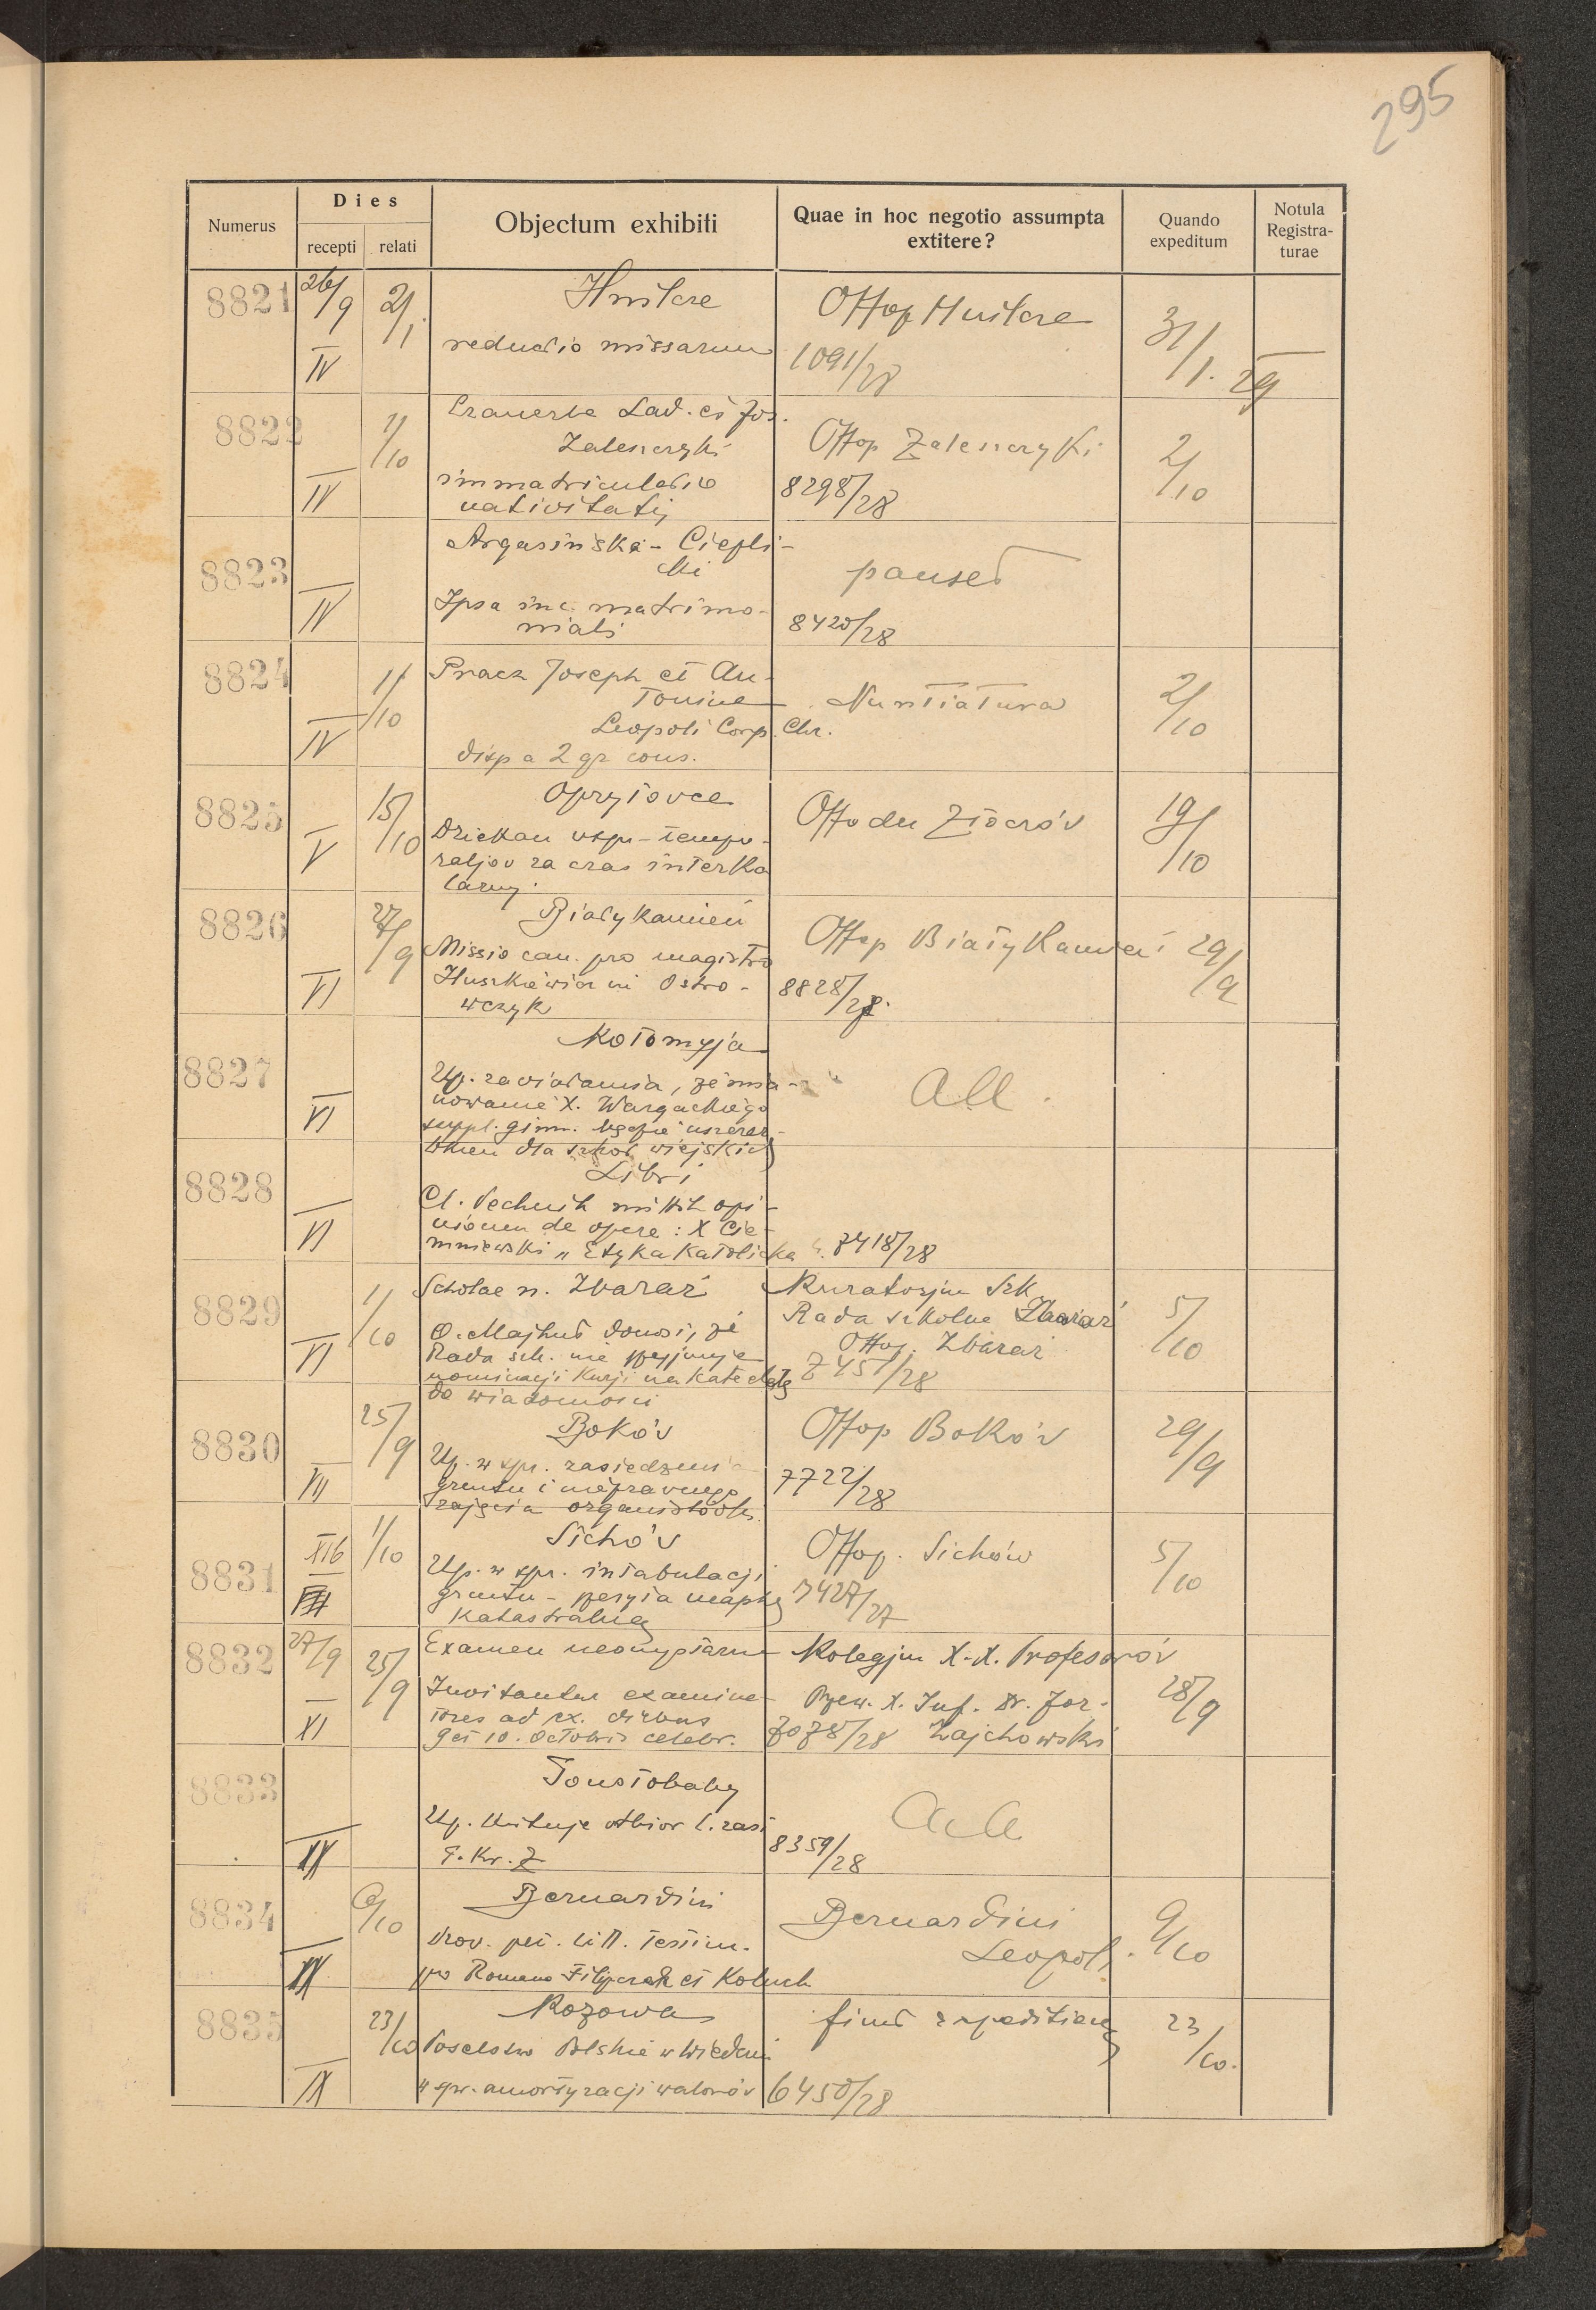 295
Numerus
Dies
recepti relati
Objectum exhibiti
Quae in hoc negotio assumpta
extitere?
Quando
expeditum
Notula
Registra-
turae
8821 26/9 2/1. Hnilcze
reductio missarum
IV
Offop Hnilcze
1091/28
31/1. 29
8822 1/10
Lad. et Jos.
Zaleszczyki
immatriculatio
nativitatis
IV
Offop Zaleszczyki
8298/28
2/10
8823
Argasińska - Ciepli-
cki
Ipsa inc. matrimo-
niali
IV
pauset
8420/28
8824 1/10
Pracz Joseph et An-
tonina
Leopoli Corp. Chr.
disp a 2 gr cons.
IV
Nuntiatura
2/10
8825 15/10
Opryłowce
Dziekan wspr. tempo-
raljów za czas interka
larny.
V
Offo du Złoczów
19/10
8826 27/9
Białykamień
Missio can. pro magistro
Huszkiewicz in Ostro-
wczyk
VI
Offop Białykamień
8828/28.
29/9
8827
Kołomyja
Up. zawiadamia, że mia-
nowanie X. Wargackiego
suppl. gimn. będzie uszczer-
bkiem dla szkół wiejskich
VI
All.
8828
Libri
Cl. Pechnik mittit opi-
nionem de opere: X Cie-
mniewski „Etyka Katolicka
VI
7418/28
8829 1/10
Scholae n. Zbaraż
O. Majkut donosi, że
Rada szk. nie przyjmuje
nominacji Kurji na katechetę
do wiadomości
VI
Kuratorjum Szk.
Rada szkolna Zbaraż
Offop. Zbaraż
7451/28
5/10
8830 25/9
Boków
Up. w spr. zasiedzenia
gruntu i nieprawnego
zajęcia organistówki.
VII
Offop Boków
7722/28
29/9
8831 XIb 1/10
Sichów
Up. w spr. intabulacji
gruntu - mapkę
katastralną
Offop. Sichów
7427/27
5/10
8832 27/9 25/9
Examen neomystarum
Invitantur examina-
tores ad ex. diebus
9 et 10. Octobris celebr.
XI
Kolegjum X.X. Profesorów
Przew. X. Inf. Dr. Joz.
7078/28 Zajchowski
28/9
8833
Toustobaby
Up. kwituje odbiór l. zasi
T. Kr. Z
IX
Acta
8359/28
8834 6/10
Bernardini
Prov. pet. litt. testim.
pro Romano Filipczak et Kobuch
IX
Bernardini
Leopoli.
9/10
8835 23/10
Kozowa
Poselstwo Polskie w Wiedniu
w spr. amortyzacji walorów
IX
fiunt expeditiones
6450/28
23/10.